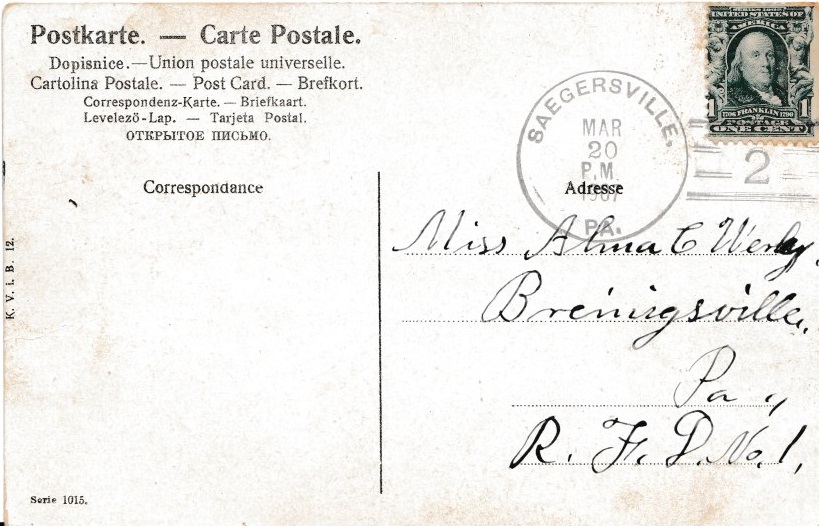 Postkarte. — Carte Postale.
Dopisnice.—Union postale universelle.
Cartolina Postale. — Post Card. — Brefkort.
Correspondenz-Karte. — Briefkaart.
Levelező-Lap. — Tarjeta Postal.
ОТКРЫТОЕ ПИСЬМО.
SERIES 1902
UNITED STATES OF
AMERICA
1706 FRANKLIN 1790
1 1
POSTAGE
ONE CENT
SAEGERSVILLE,
MAR
20
P.M.
1907
PA.
2
Correspondance
Adresse
Miss Alma C Werley
Breinigsville,
Pa.,
R. F. D. No. 1,
K. V. i. B. 12.
Serie 1015.